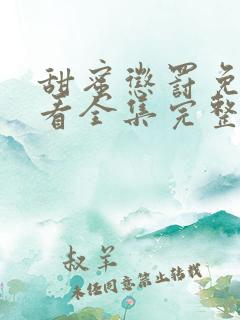 甜蜜惩罚免
看全集完整
叔羊
未经同意禁止转载